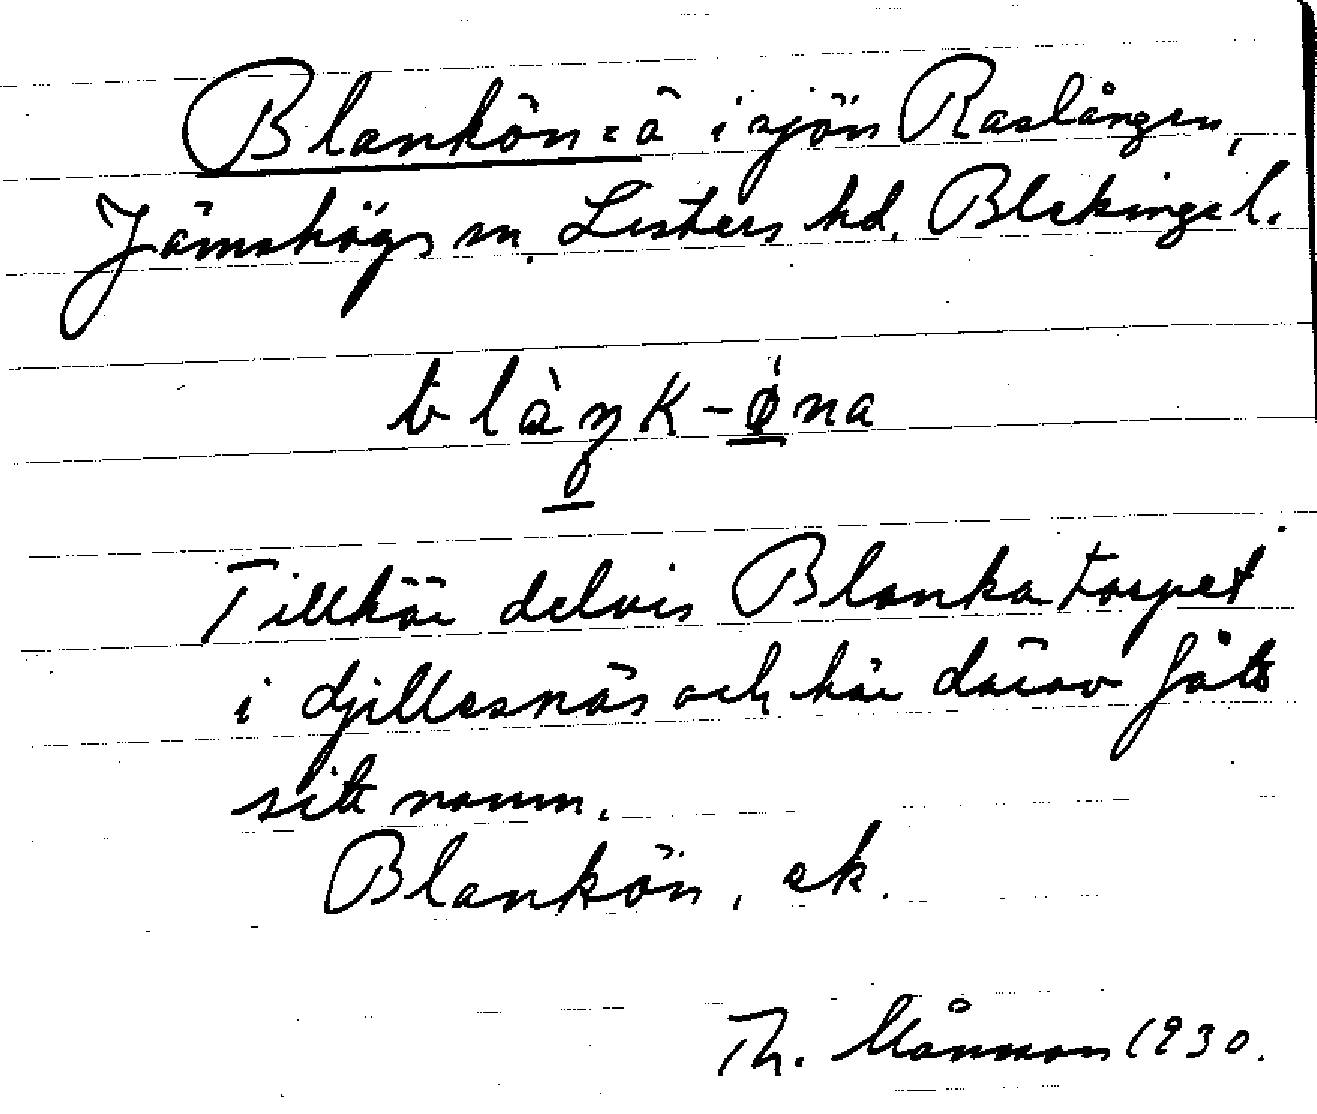 Blankön = ö i sjön Raslången,
Jämshögs sn. Listers hd. Blekinge l.
blàŋk-ø̀na
Tillhör delvis Blankatorpet
i djillesnäs och här därav fått
sitt namn.
Blankön, ek.
Th. Månsson 1930.